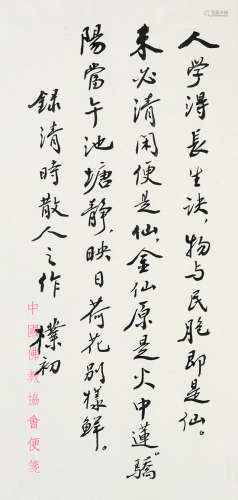 人学得長生诀，物与民胞即是仙。
未必清闲便是仙，金仙原是火中蓮。驕
陽當午池塘靜，映日荷花别樣鮮。
録清時散人之作 樸初
中國佛教協會便箋